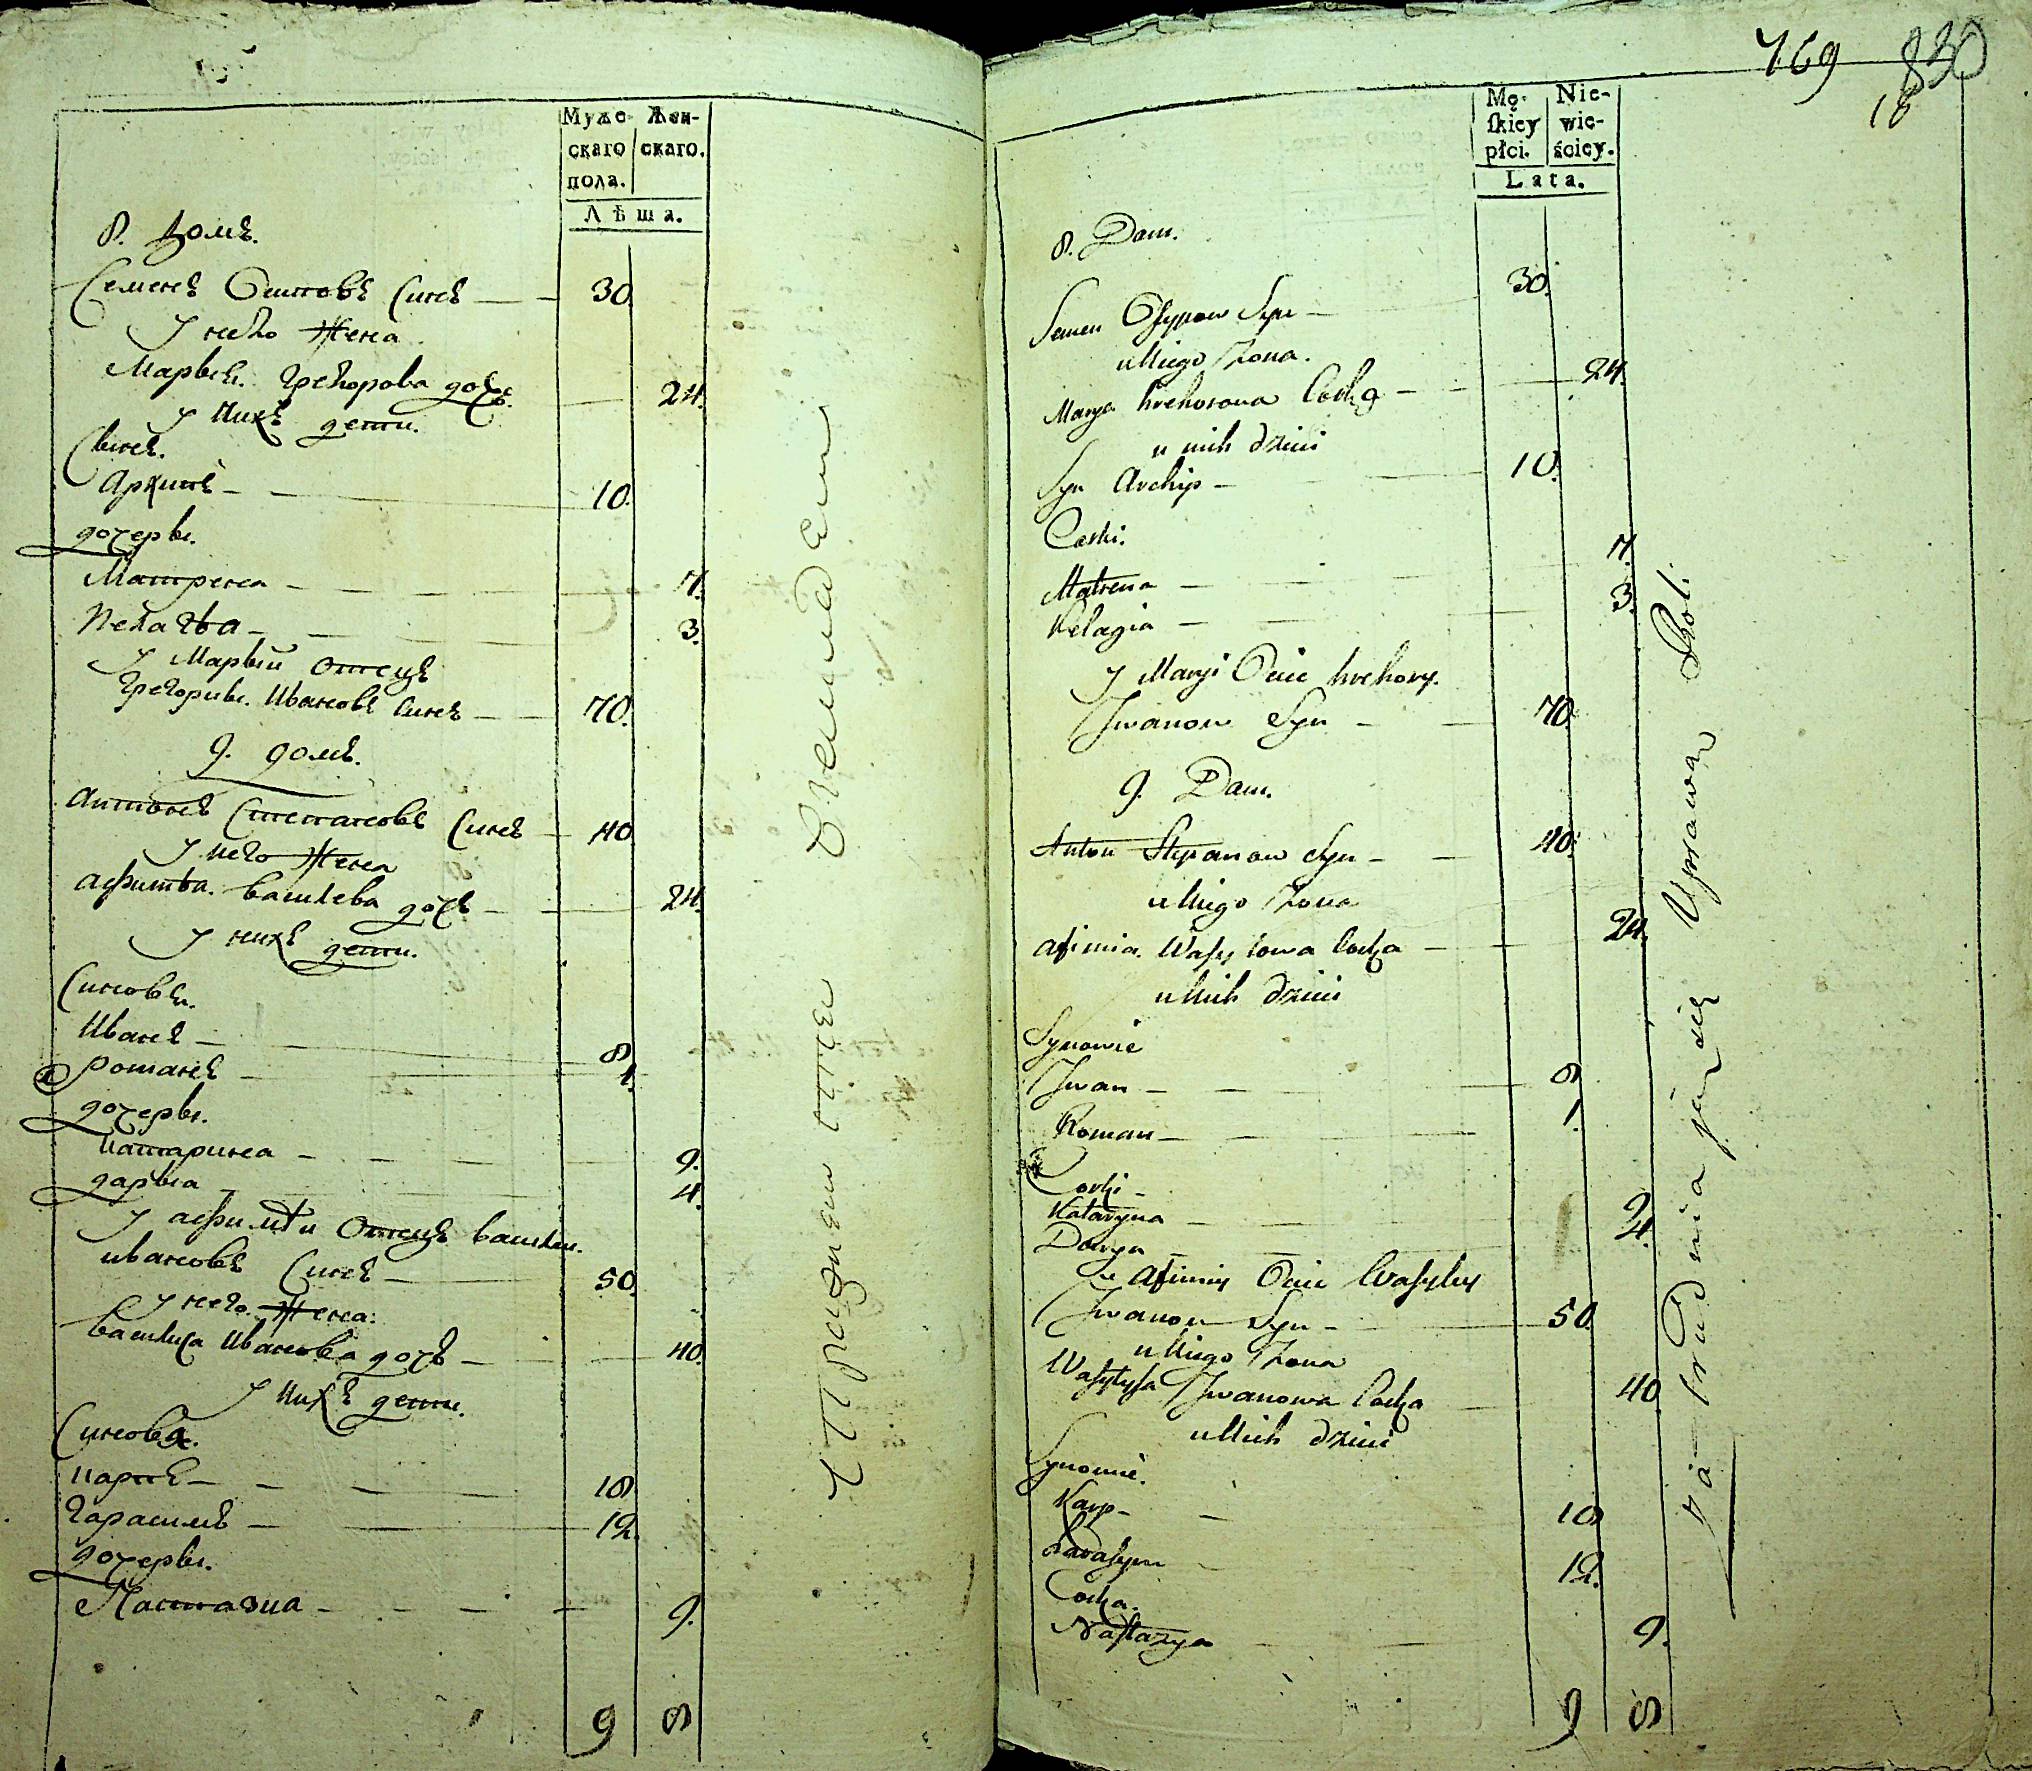 Муже-
скаго
пола.
Жен-
скаго.
Лѣта.
8. домъ.
Семенъ Осиповъ Синъ — 30.
У него Жена
Марья Грегорова дочь — 24.
У Нихъ дети.
Синъ.
Архипъ — 10.
дочеры.
Матрена — 7.
Пелагѣа — 3.
У Марьи Отецъ
Грегорий Ивановъ Синъ — 70.
9. домъ.
Антонъ Степановъ Синъ — 40
У него Жена
Афимѣа Василева дочъ — 24.
У нихъ дети.
Синовьи.
Иванъ — 8
Романъ — 1.
дочеры.
Катарина — 9.
дарьа — 4.
У афимѣи Отецъ василий
ивановъ Синъ — 50.
У него Жена:
василиса Иванова дочъ — 40.
У Нихъ дети.
Синовья.
Карпъ — 18
Гарасимъ — 12.
дочеры.
Настазиа — 9.
9 8
769 830
18
Mę-
ſkiey
płci.
Nie-
wie-
ściey.
Lata.
8. Dam.
Semen Osypow Syn — 30.
u Niego Żona.
Marya hrehorowa Corka — 24.
u nich dzieci
Syn Archip — 10.
Corki.
Matrena — 7.
Pelagia — 3.
U Maryi Ociec hrehory.
Jwanow Syn — 70.
9. Dam.
Anton Stepanow Syn — 40.
u Niego Żona
Afimia Wasylowa Corka — 24.
u Nich dzieci
Synowie
Jwan — 8
Roman — 1.
Corki —
Kataryna — 9
Darya — 4.
u Afimiy Ociec Wasyley
Jwanow Syn — 50.
u Niego Żona
Wasylysa Jwanowa Corka — 40
u Nich dzieci
Synowie.
Karp — 18
harasym — 12.
Corka.
Nastazya — 9.
9 8
Zatrudnia ją się Uprawą Roli.